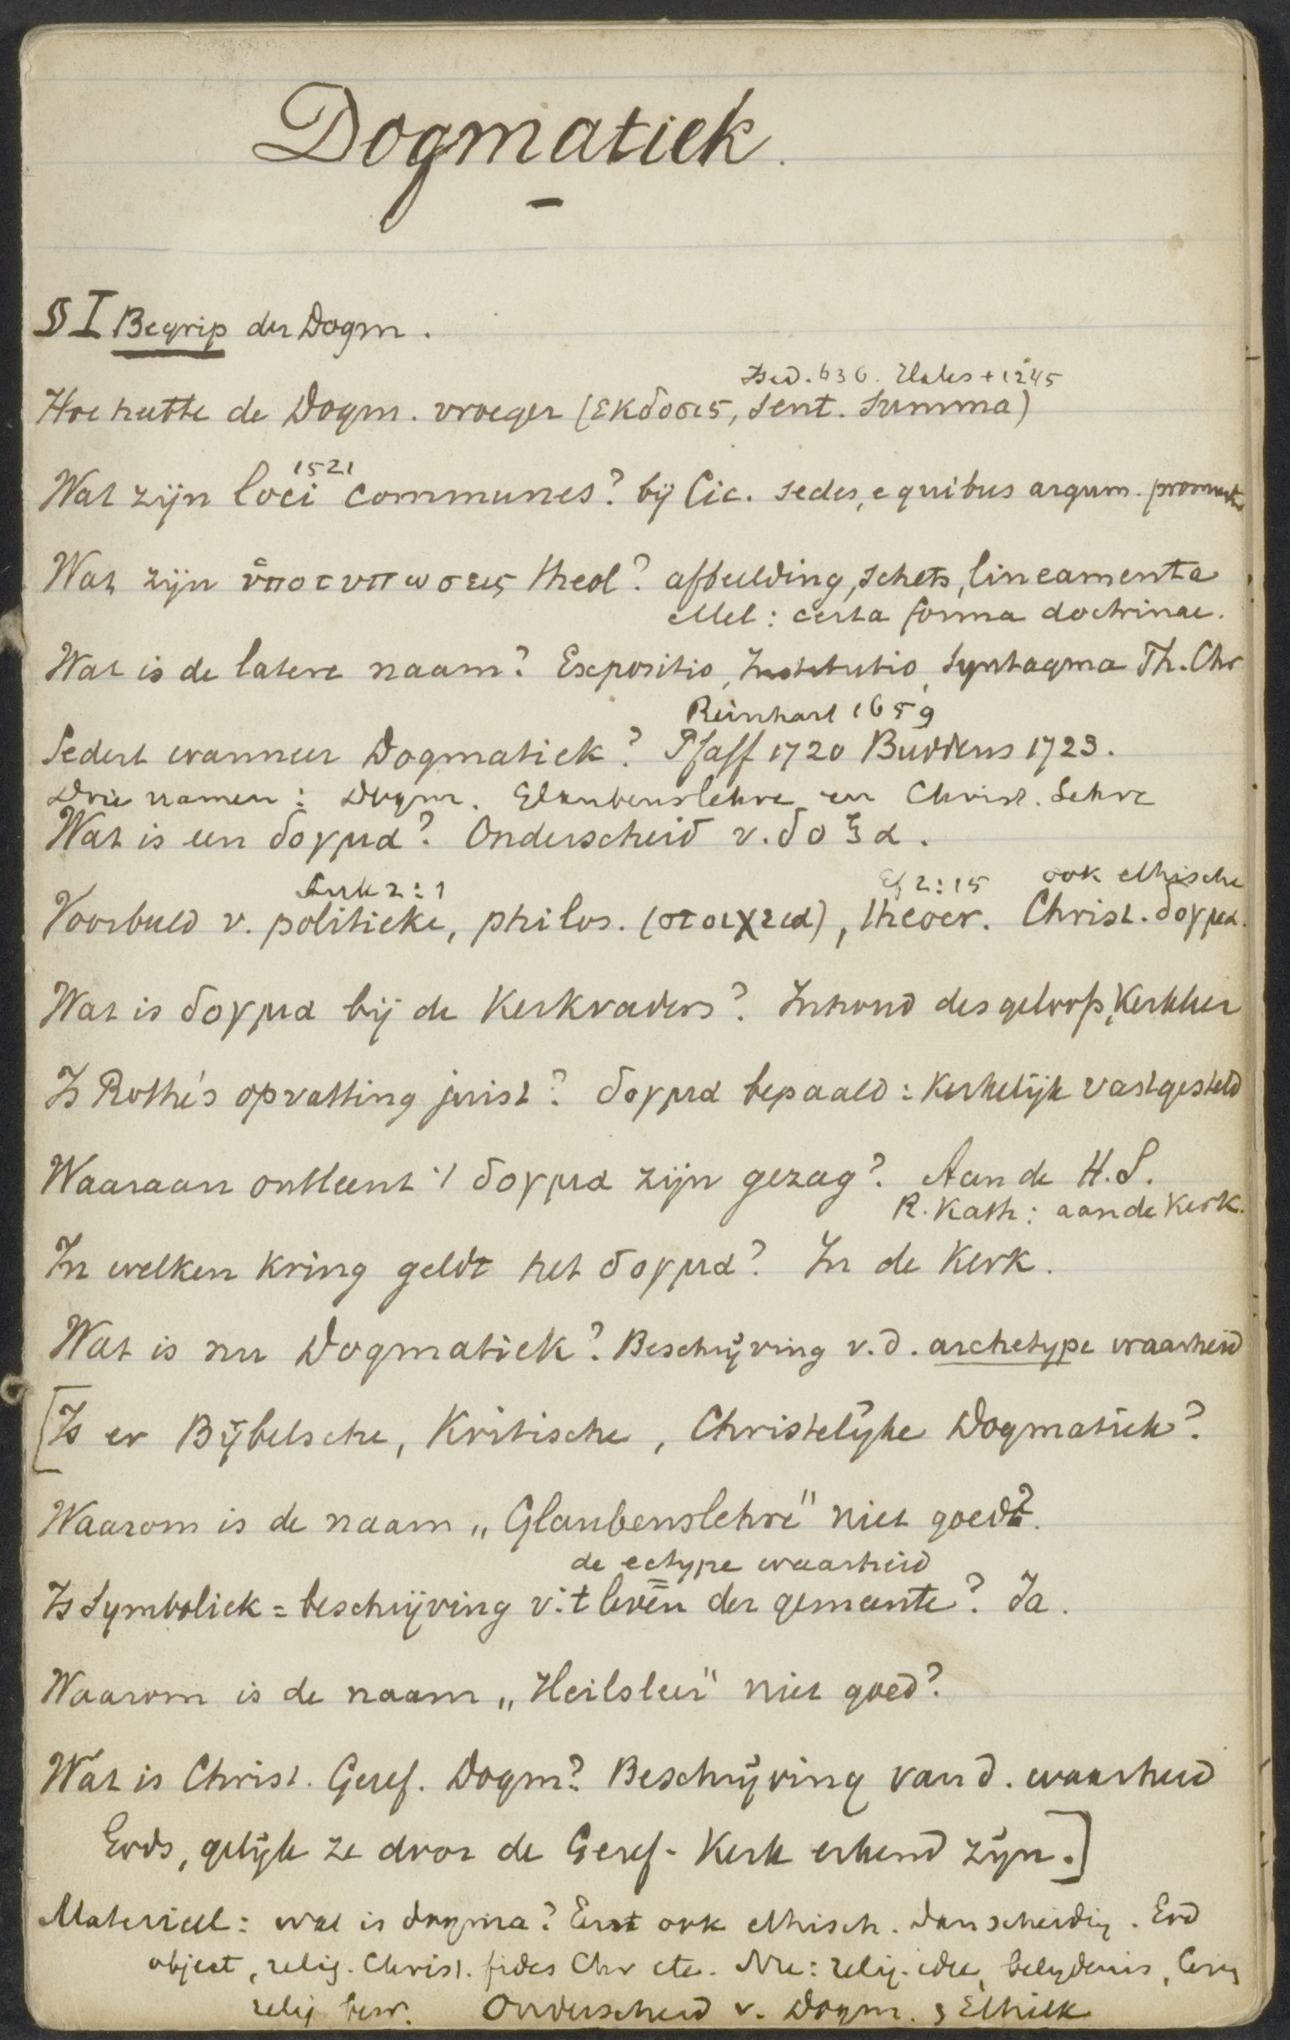 Dogmatiek.
§ I Begrip der Dogm.
Isid. 636. Hales + 1245
Hoe heette de Dogm. vroeger (εκδοσις, Sent. Summa)
1521
Wat zijn loci communes? bij Cic. sedes, e quibus argum.
Wat zijn ὑποτυπωσεις theol? afbeelding, schets, lineamenta
Mel: certa forma doctrinae.
Wat is de latere naam? Expositio, Institutio, Syntagma Th. Chr
Reinhart 1659
Sedert wanneer Dogmatiek? Pfaff 1720 Buddeus 1723.
Drie namen: Dogm. Glaubenslehre en Christ. Lehre
Wat is een δογμα? Onderscheid v. δοξα.
Luk 2:1 Ef 2:15 ook ethische
Voorbeeld v. politieke, philos. (στοιχεια), theocr. Christ. δογμα.
Wat is δογμα bij de Kerkvaders? Inhoud des geloofs, Kerkleer
Is Rothe's opvatting juist? δογμα bepaald: Kerkelijk vastgesteld
Waaraan ontleent 't δογμα zijn gezag? Aan de H.S.
R. Kath: aan de Kerk.
In welken kring geldt het δογμα? In de Kerk.
Wat is nu Dogmatiek? Beschrijving v.d. archetype waarheid
[Is er Bijbelsche, Kritische, Christelijke Dogmatiek?
Waarom is de naam „Glaubenslehre" niet goed?
de ectype waarheid
Is Symboliek = beschrijving v. 't leven der gemeente? Ja.
Waarom is de naam „Heilsleer" niet goed?
Wat is Christ. Geref. Dogm? Beschrijving van d. waarheid
Gods, gelijk ze door de Geref. Kerk erkend zijn.]
Materieel: wat is dogma? Eerst ook ethisch. dan scheiding. God
object, relig. Christ. fides Chr etc. Nu: relig. idee, belijdenis,
relig bew. Onderscheid v. Dogm. & Ethiek